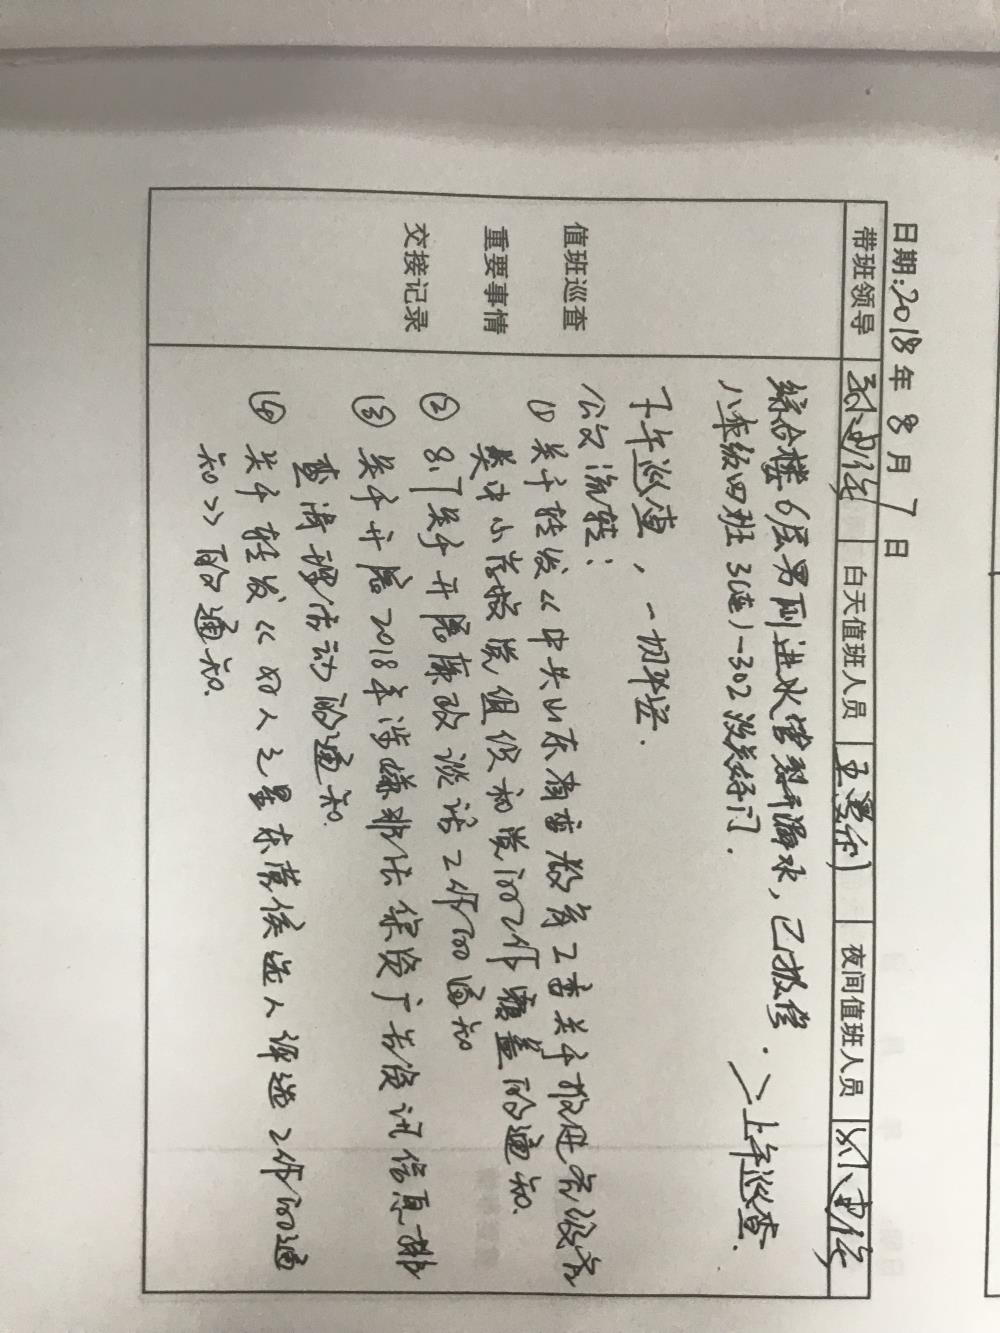 日期:2018年8月7日
带班领导 白天值班人员 夜间值班人员
综合楼6层男厕进水管裂开漏水，已报修.
八年级四班3(连)-302没关门.
>上午巡查.
下午巡查，一切平安.
值班巡查
重要事情
交接记录
公文流转：
① 关于转发《中共山东省委教育工委关于推进各级各
类中小学校党组织和党的工作覆盖的通知.
② 8.7关于开展廉政谈话工作的通知
③ 关于开展2018年涉嫌非法集资广告资讯信息排
查清理活动的通知.
④ 关于转发《四人之星东营候选人评选工作的通
知》的通知.